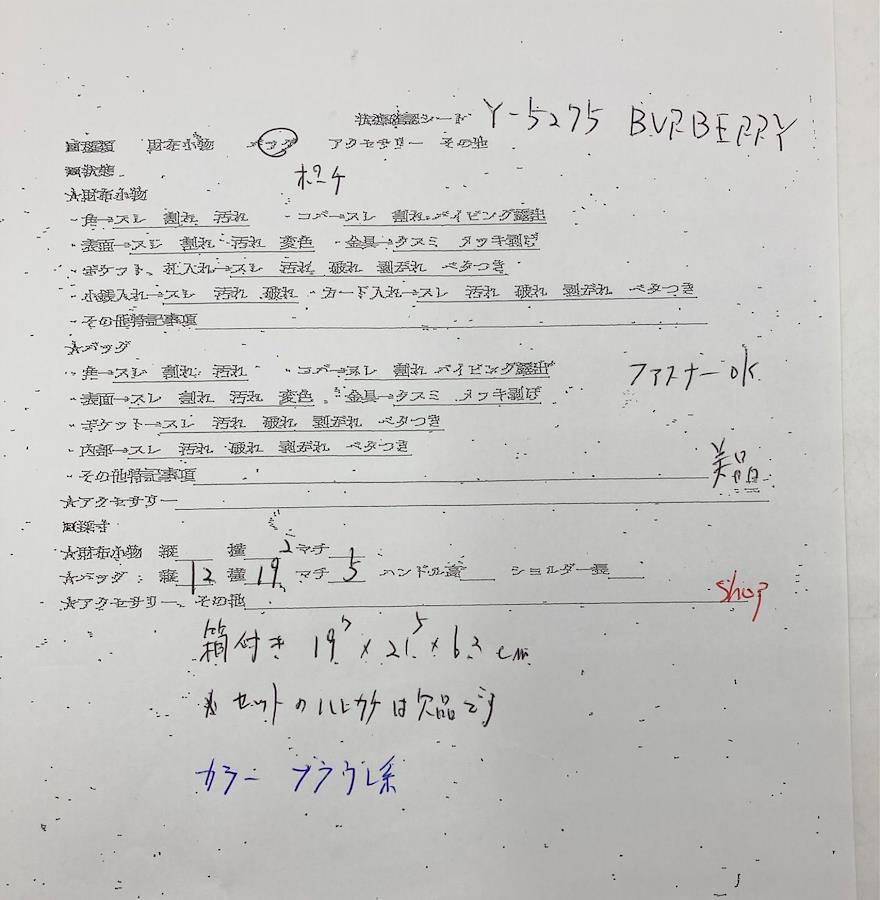 状態確認シート Y-5275 BURBERRY
■種類 財布小物 バッグ アクセサリー その他
■状態 ポーチ
★財布小物
・角→スレ 割れ 汚れ ・コバ→スレ 割れ パイピング露出
・表面→スレ 割れ 汚れ 変色 ・金具→クスミ メッキ剥げ
・ポケット、札入れ→スレ 汚れ 破れ 剥がれ ベタつき
・小銭入れ→スレ 汚れ 破れ ・カード入れ→スレ 汚れ 破れ 剥がれ ベタつき
・その他特記事項
★バッグ
・角→スレ 割れ 汚れ ・コバ→スレ 割れ パイピング露出 ファスナーOK
・表面→スレ 割れ 汚れ 変色 ・金具→クスミ メッキ剥げ
・ポケット→スレ 汚れ 破れ 剥がれ ベタつき
・内部→スレ 汚れ 破れ 剥がれ ベタつき
・その他特記事項 美品
★アクセサリー
■採寸
★財布小物 縦 横 2 マチ
★バッグ : 縦 12 横 19 マチ 5 ハンドル高 ショルダー長
★アクセサリー、その他 shop
箱付き 19.5 × 21.5 × 6.3 cm
★セットのハンカチは欠品です
カラー ブラウン系